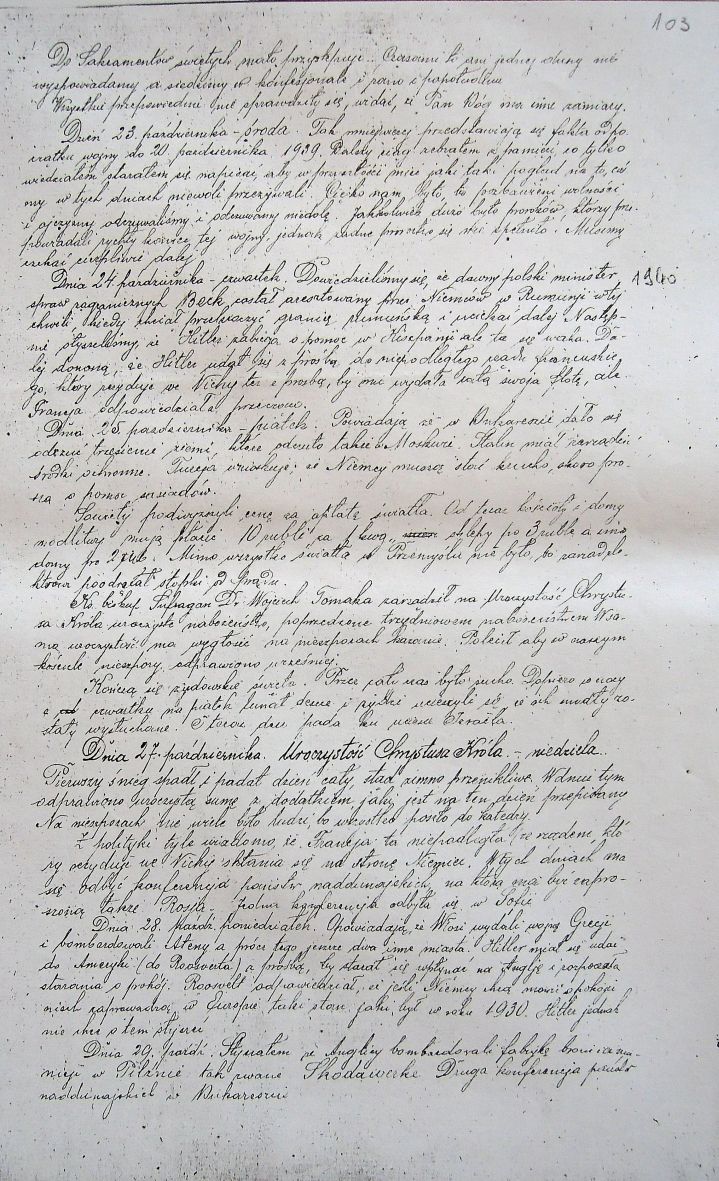 103
Do Sakramentów świętych mało przystępuje... Czasami to ani jednej duszy nie
wyspowiadamy a siedzimy w konfesjonale i rano i popołudniu
Wszystkie przepowiednie nie sprawdziły się, widać, że Pan Bóg ma inne zamiary.
Dzień 23. października – środa. Tak mniejwięcej przedstawiają się fakta od po-
czątku wojny do 20. października 1939. Dalszy ciąg zebrałem z pamięci, co tylko
wiedziałem starałem się napisać, aby w przyszłości mieć jaki taki pogląd na to, cóś
my w tych dniach niewoli przeżywali. Ciężko nam było, bo pozbawieni wolności
i ojczyzny odczuwaliśmy i niedolę. Jakkolwiek dużo było proroków, którzy prze-
powiadali rychły koniec tej wojny, jednak żadne proroctwo się nie spełniło. Musimy
czekać cierpliwie dalej
Dnia 24. października – czwartek. Dowiedzieliśmy się, że dawny polski minister 1940
spraw zagranicznych Beck został aresztowany przez Niemców w Rumunji w tej
chwili, kiedy chciał przekroczyć granicę rumuńską i uciekać dalej. Następ-
nie słyszeliśmy, że Hitler zabiega o pomoc w Hiszpanji ale ta się waha. Da-
lej donoszą, że Hitler udał się z prośbą do niepodległego rządu francuskie-
go, który rezyduje we Vichy też z prośbą, by mu wydała całą swoją flotę, ale
Francja odpowiedziała przecząco.
Dnia 25. października – piątek. Powiadają że w Bukareszcie dało się
odczuć trzęsienie ziemi, które odczuto także w Moskwie. Stalin miał zarządzić
środki ochronne. Turcja wnioskuje, że Niemcy muszą stać krucho, skoro pro-
szą o pomoc sąsiadów.
Sowiety podwyższyli cenę za opłatę światła. Od teraz kościoły i domy
modlitwy mają płacić 10 rubli za 1 kwg, sklepy po 3 ruble a inne
domy po Mimo wszystko światła w Przemyślu nie było, bo zarząd ele-
ktrowni poodcinał słupki od prądu.
Ks. biskup Sufragan Dr. Wojciech Tomaka zarządził na Uroczystość Chrystu-
sa Króla uroczyste nabożeństwo, poprzedzone trzydniowem nabożeństwem. W sa-
mą uroczystość ma wygłosić na nieszporach kazanie. Polecił aby w naszym
kościele nieszpory odprawiono wcześniej.
Kończą się żydowskie święta. Przez cały czas było sucho. Dopiero w nocy
z czwartku na piątek lunął deszcz i żydzi ucieszyli się, że ich modły zo-
stały wysłuchane. I teraz deszcz pada ku uciesze Izraela.
Dnia 27. października. Uroczystość Chrystusa Króla. – niedziela.
Pierwszy śnieg spadł i padał dzień cały, stąd zimno przenikliwe. W dniu tym
odprawiono uroczystą sumę z dodatkiem jaki jest na ten dzień przepisany
Na nieszporach nie wiele było ludzi, bo wszystko poszło do katedry.
Z polityki tyle wiadomo, że Francja ta niepodległa /ze rządem, któ-
ry rezyduje we Vichy skłania się na stronę Niemiec. W tych dniach ma
się odbyć konferencja państw naddunajskich, na którą ma być zapro-
szona także Rosja. konferencja odbyła się w Sofii
Dnia 28. paźdź. poniedziałek. Opowiadają, że Włosi wydali wojnę Grecji
i bombardowali Ateny a prócz tego jeszcze dwa inne miasta. Hitler miał się udać
do Ameryki (do Roosvelta) z prośbą, by starał się wpłynąć na Anglję i rozpoczął
starania o pokój. Roosvelt odpowiedział, że jeśli Niemcy chcą mówić o pokoju
niech zaprowadzą w Europie taki stan, jaki był w roku 1930. Hitler jednak
nie chce o tem słyszeć
Dnia 29. paźdź. Słyszałem że Anglicy bombardowali fabrykę broni i amu-
nicji w Pilźnie tak zwane Skodawerke Druga konferencja państw
naddunajskich w Bukareszcie